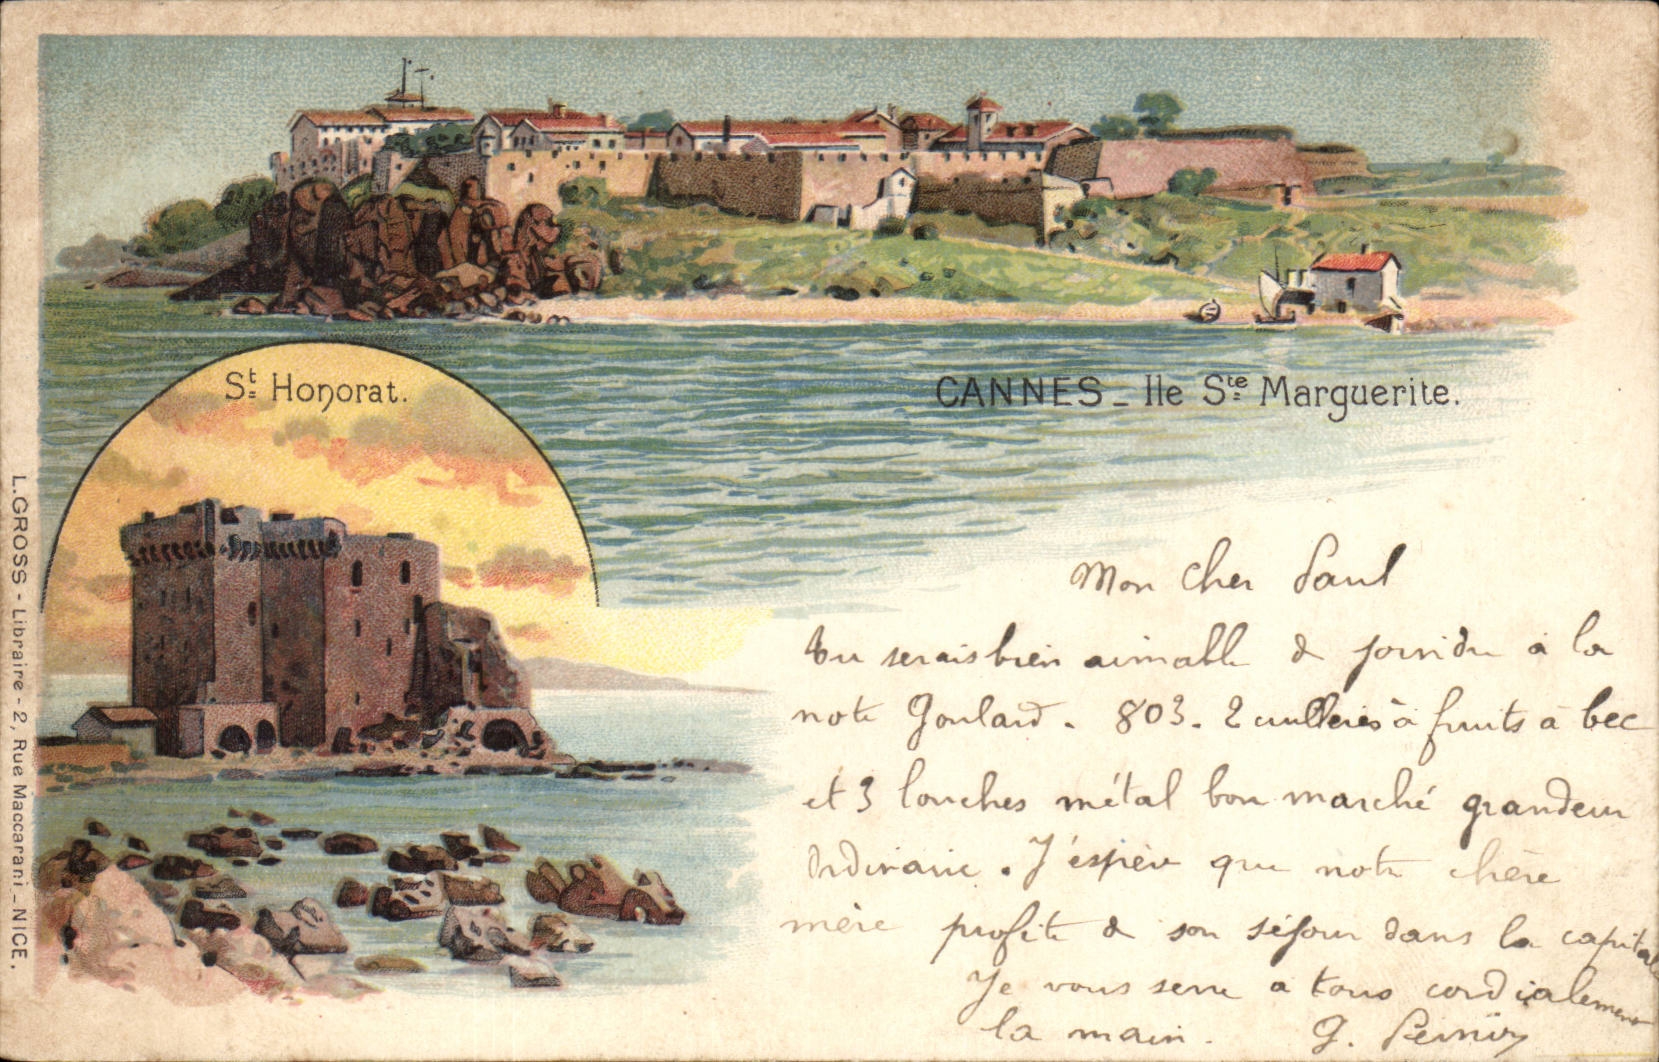 St Honorat.
CANNES _ Ile Ste Marguerite.
L. GROSS - Libraire - 2, Rue Maccarani _ NICE.
Mon cher Paul
Tu serais bien aimable de joindre à la
note Goulard. 803. 2 cuillères à fruits à bec
et 3 louches métal bon marché grandeur
ordinaire. J'espère que notre chère
mère profite de son séjour dans la capitale
Je vous serre à tous cordialement
la main. G.